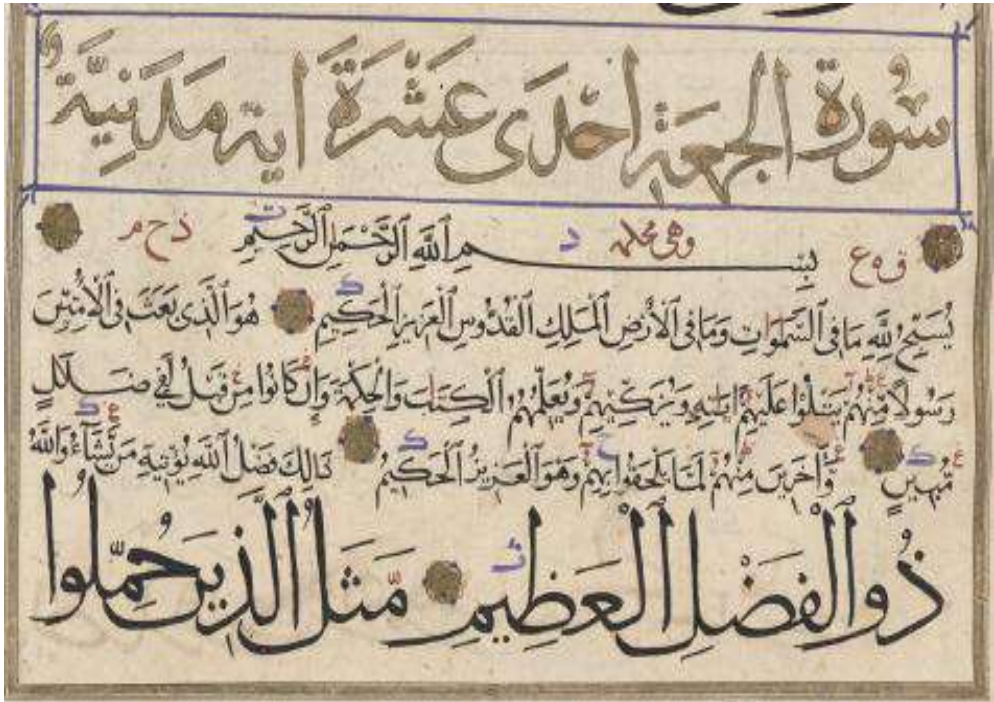 سورة الجمعة احدى عشرة اية مدنية
بِسْمِ اللهِ الرَّحْمٰنِ الرَّحِيمِ
يُسَبِّحُ لِلَّهِ مَا فِى السَّمٰوَاتِ وَمَا فِى الْأَرْضِ الْمَلِكِ الْقُدُّوسِ الْعَزِيزِ الْحَكِيمِ هُوَ الَّذِى بَعَثَ فِى الْأُمِّيِّنَ
رَسُولًا مِنْهُمْ يَتْلُوا عَلَيْهِمْ ايٰتِهِ وَيُزَكِّيهِمْ وَيُعَلِّمُهُمُ الْكِتٰبَ وَالْحِكْمَةَ وَإِنْ كَانُوا مِنْ قَبْلُ لَفِى ضَلٰلٍ
مُبِينٍ وَآخَرِينَ مِنْهُمْ لَمَّا يَلْحَقُوا بِهِمْ وَهُوَ الْعَزِيزُ الْحَكِيمُ ذَالِكَ فَضْلُ اللَّهِ يُؤْتِيهِ مَنْ يَشَآءُ وَاللَّهُ
ذُو الْفَضْلِ الْعَظِيمِ مَثَلُ الَّذِينَ حُمِّلُوا